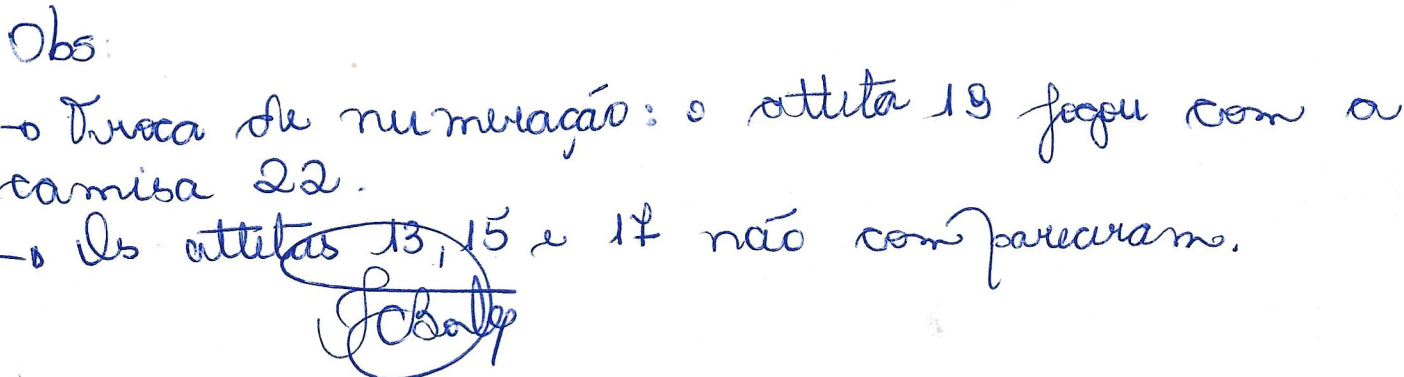 Obs:
→ Troca de numeração: o atleta 19 jogou com a
camisa 22.
→ Os atletas 13, 15 e 17 não compareceram.